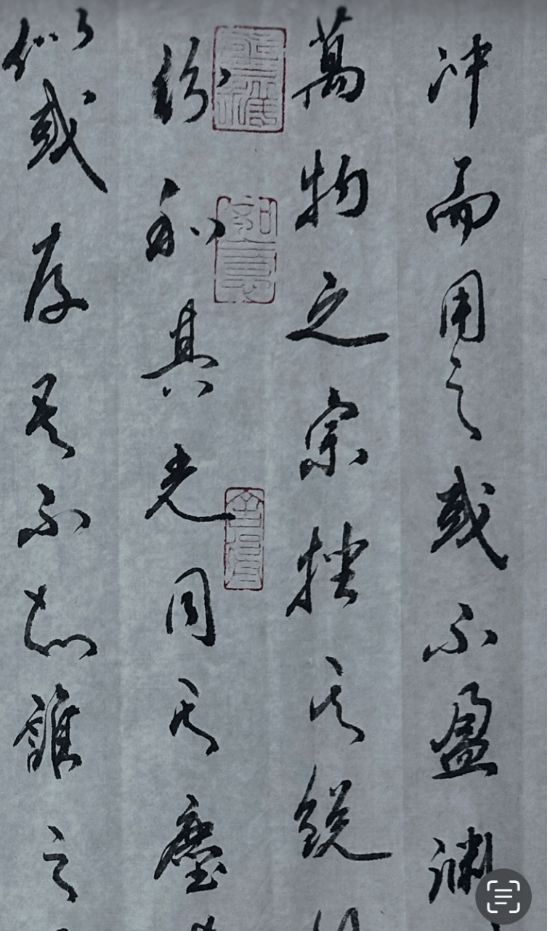 冲而用之或不盈渊
萬物之宗挫其銳
紛和其光同其塵
似或存吾不知誰之